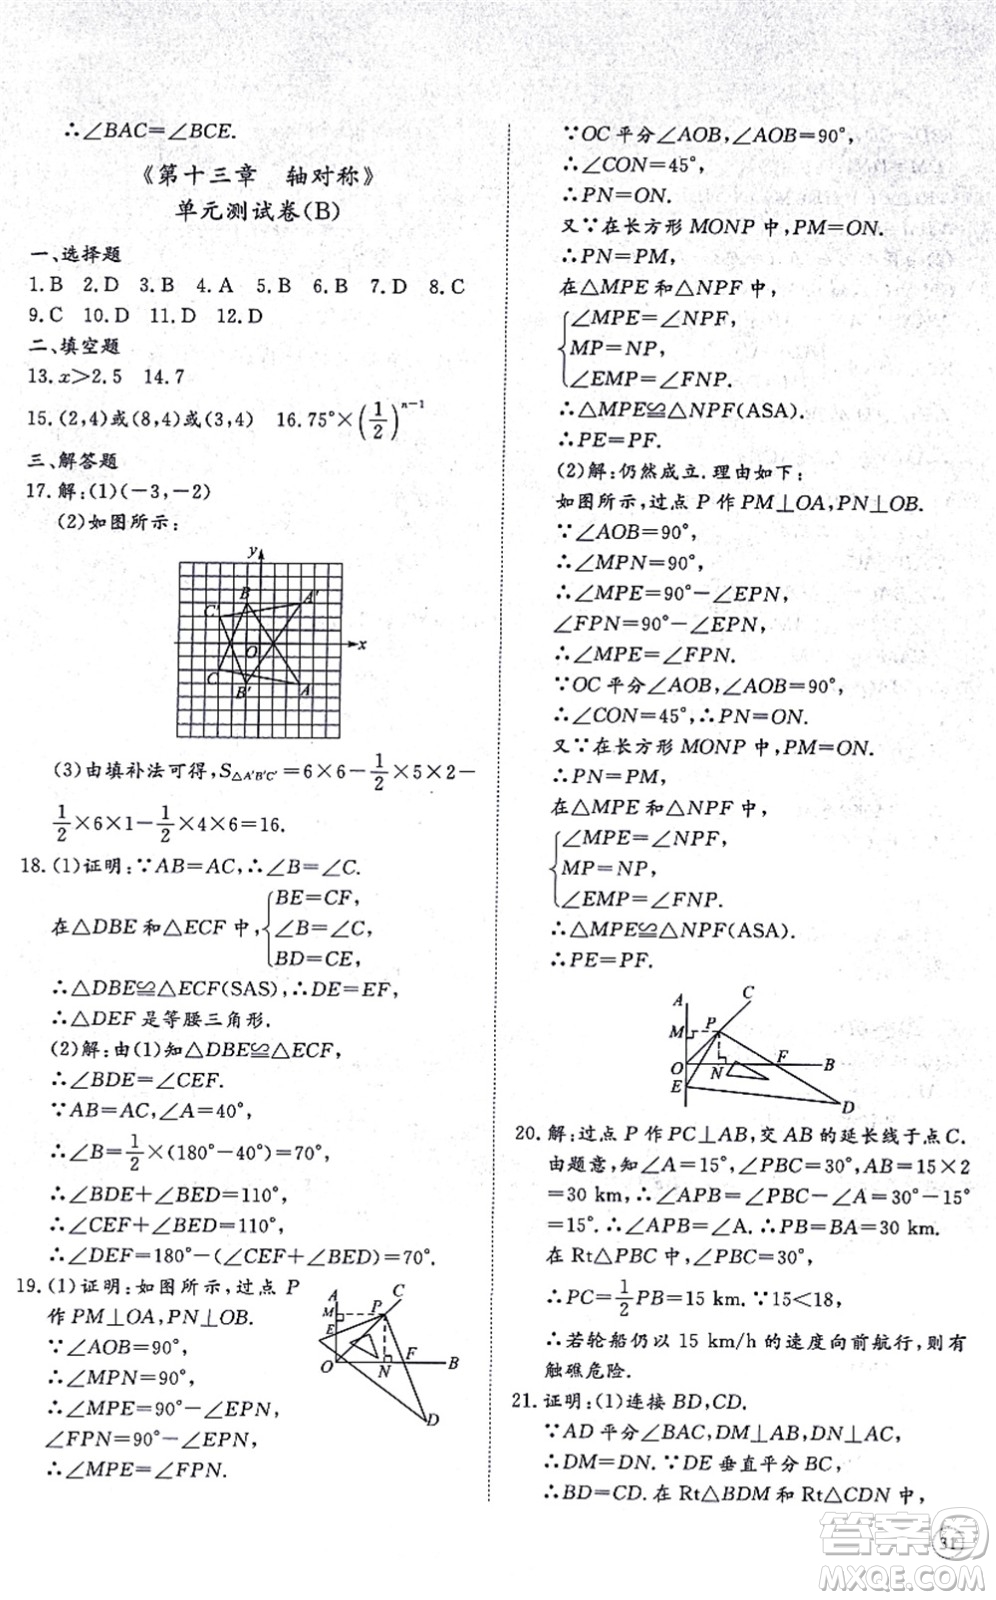 ∴∠BAC=∠BCE.
《第十三章　轴对称》
单元测试卷(B)
一、选择题
1.B 2.D 3.B 4.A 5.B 6.B 7.D 8.C
9.C 10.D 11.D 12.D
二、填空题
13.x>2.5 14.7
15.(2,4)或(8,4)或(3,4) 16.75°×(1/2)^(n-1)
三、解答题
17.解:(1)(-3,-2)
(2)如图所示:
y
B A′
C′
O x
C
B′ A
(3)由填补法可得,S△A′B′C′=6×6-1/2×5×2-
1/2×6×1-1/2×4×6=16.
18.(1)证明:∵AB=AC,∴∠B=∠C.
在△DBE和△ECF中,{BE=CF,
∠B=∠C,
BD=CE,
∴△DBE≌△ECF(SAS),∴DE=EF,
∴△DEF是等腰三角形.
(2)解:由(1)知△DBE≌△ECF,
∴∠BDE=∠CEF.
∵AB=AC,∠A=40°,
∴∠B=1/2×(180°-40°)=70°,
∴∠BDE+∠BED=110°,
∴∠CEF+∠BED=110°,
∴∠DEF=180°-(∠CEF+∠BED)=70°.
19.(1)证明:如图所示,过点P
作PM⊥OA,PN⊥OB.
∵∠AOB=90°,
∴∠MPN=90°,
∴∠MPE=90°-∠EPN,
∠FPN=90°-∠EPN,
∴∠MPE=∠FPN.
A C
M P
E
O N F B
D
∵OC平分∠AOB,∠AOB=90°,
∴∠CON=45°,
∴PN=ON.
又∵在长方形MONP中,PM=ON.
∴PN=PM,
在△MPE和△NPF中,
{∠MPE=∠NPF,
MP=NP,
∠EMP=∠FNP,
∴△MPE≌△NPF(ASA).
∴PE=PF.
(2)解:仍然成立.理由如下:
如图所示,过点P作PM⊥OA,PN⊥OB.
∵∠AOB=90°,
∴∠MPN=90°,
∴∠MPE=90°-∠EPN,
∠FPN=90°-∠EPN,
∴∠MPE=∠FPN.
∵OC平分∠AOB,∠AOB=90°,
∴∠CON=45°,∴PN=ON.
又∵在长方形MONP中,PM=ON.
∴PN=PM,
在△MPE和△NPF中,
{∠MPE=∠NPF,
MP=NP,
∠EMP=∠FNP.
∴△MPE≌△NPF(ASA).
∴PE=PF.
A C
M P
O N F B
E
D
20.解:过点P作PC⊥AB,交AB的延长线于点C.
由题意,知∠A=15°,∠PBC=30°,AB=15×2
=30 km,∴∠APB=∠PBC-∠A=30°-15°
=15°.∴∠APB=∠A.∴PB=BA=30 km.
在Rt△PBC中,∠PBC=30°,
∴PC=1/2PB=15 km.∵15<18,
∴若轮船仍以15 km/h的速度向前航行,则有
触礁危险.
21.证明:(1)连接BD,CD.
∵AD平分∠BAC,DM⊥AB,DN⊥AC,
∴DM=DN.∵DE垂直平分BC,
∴BD=CD.在Rt△BDM和Rt△CDN中,
31
答案圈
MXQE.COM